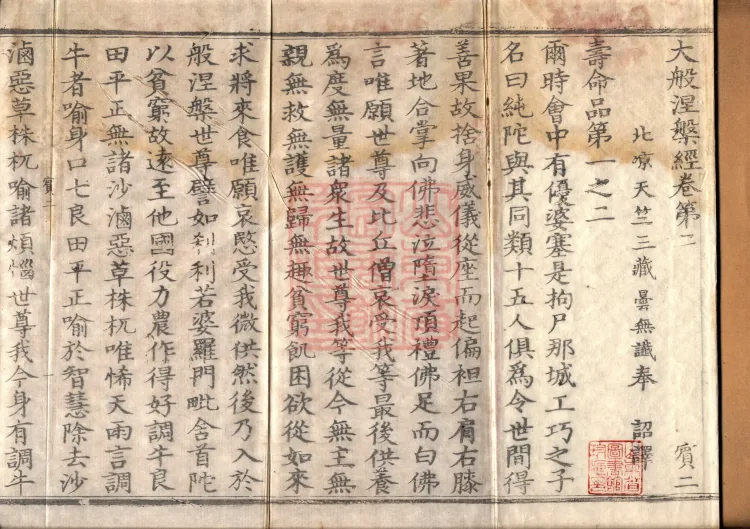 大般涅槃經卷第二 賓二
北涼天竺三藏曇無讖奉 詔譯
壽命品第一之二
爾時會中有優婆塞是拘尸那城工巧之子
名曰純陀與其同類十五人俱爲令世間得
善果故捨身威儀從座而起偏袒右肩右膝
著地合掌向佛悲泣墮淚頂禮佛足而白佛
言唯願世尊及比丘僧哀受我等最後供養
爲度無量諸衆生故世尊我等從今無主無
親無救無護無歸無趣貧窮飢困欲從如來
求將來食唯願哀愍受我微供然後乃入於
般涅槃世尊譬如刹利若婆羅門毗舍首陀
以貧窮故遠至他國役力農作得好調牛良
田平正無諸沙滷惡草株杌唯悕天雨言調
牛者喻身口七良田平正喻於智慧除去沙
賓二
滷惡草株杌喻諸煩惱世尊我今身有調牛